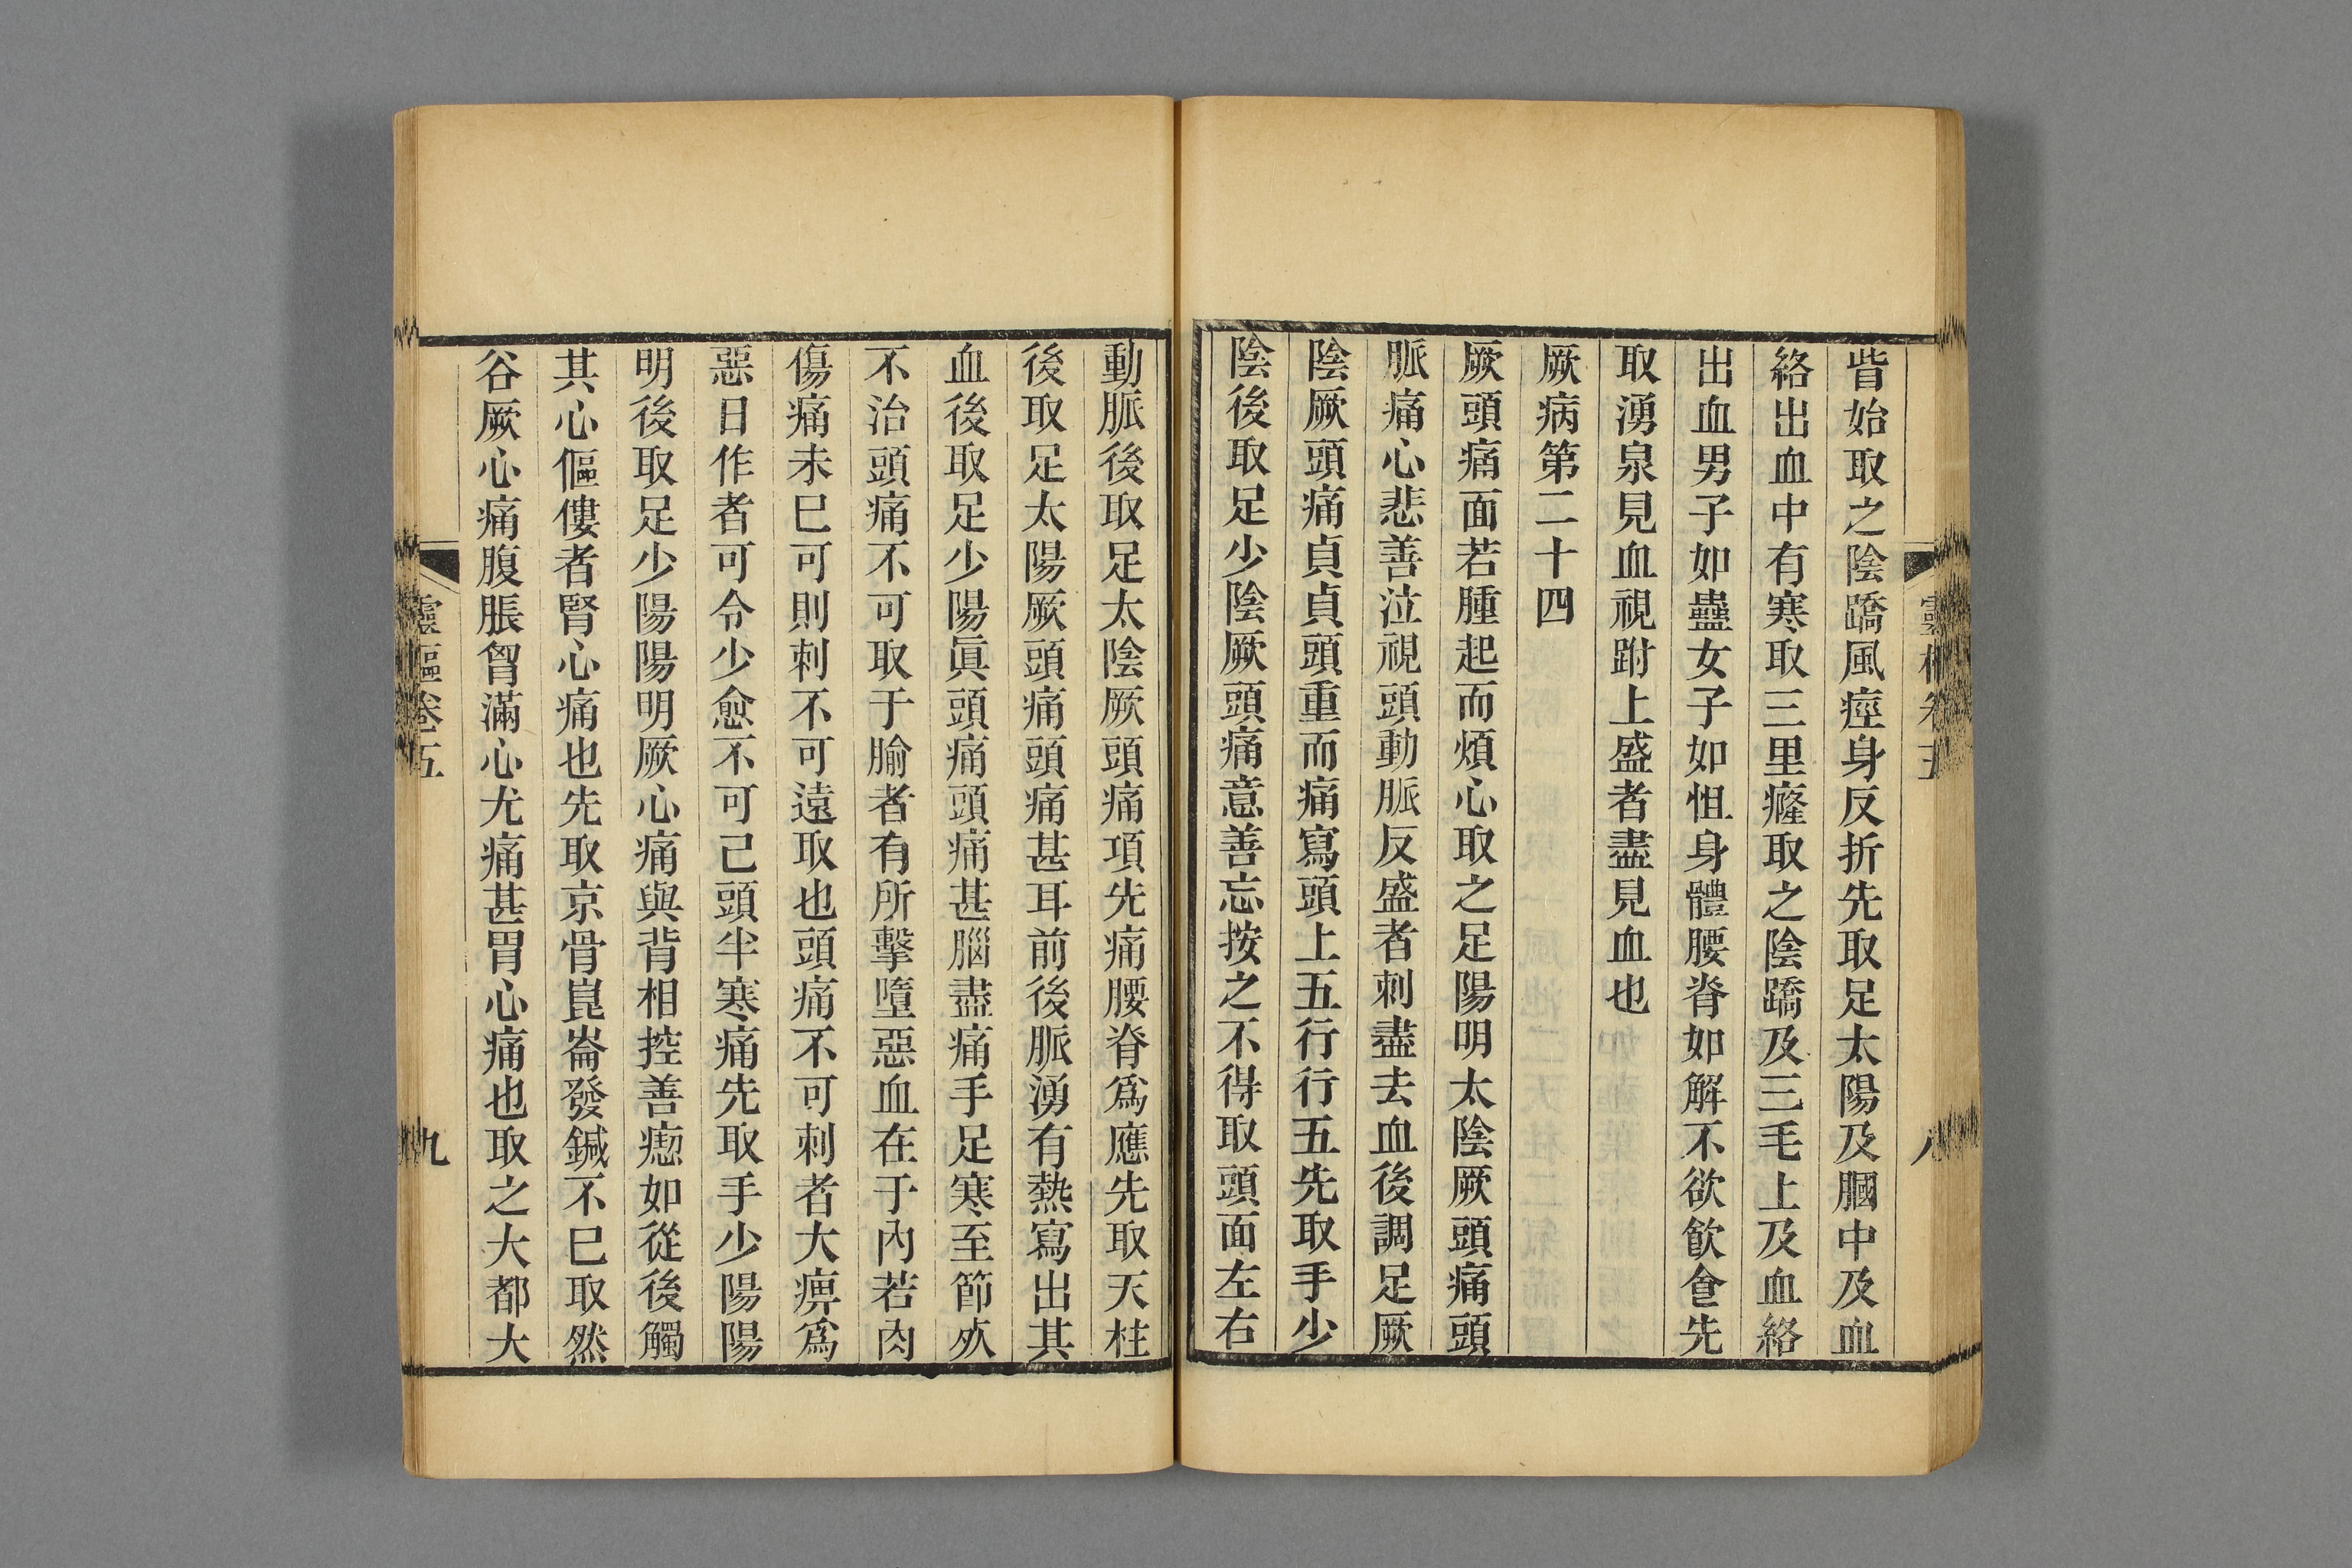 靈樞卷五
八
眥始取之陰蹻風痙身反折先取足太陽及膕中及血
絡出血中有寒取三里癃取之陰蹻及三毛上及血絡
出血男子如蠱女子如怚身體腰脊如解不欲飮食先
取湧泉見血視跗上盛者盡見血也
厥病第二十四
厥頭痛面若腫起而煩心取之足陽明太陰厥頭痛頭
脈痛心悲善泣視頭動脈反盛者刺盡去血後調足厥
陰厥頭痛貞貞頭重而痛寫頭上五行行五先取手少
陰後取足少陰厥頭痛意善忘按之不得取頭面左右
動脈後取足太陰厥頭痛項先痛腰脊爲應先取天柱
後取足太陽厥頭痛頭痛甚耳前後脈湧有熱寫出其
血後取足少陽眞頭痛頭痛甚腦盡痛手足寒至節𣦸
不治頭痛不可取于腧者有所擊墮惡血在于內若肉
傷痛未已可則刺不可遠取也頭痛不可刺者大痹爲
惡日作者可令少愈不可已頭半寒痛先取手少陽陽
明後取足少陽陽明厥心痛與背相控善瘛如從後觸
其心傴僂者腎心痛也先取京骨崑崙發鍼不已取然
谷厥心痛腹脹胷滿心尤痛甚胃心痛也取之大都大
靈樞卷五
九